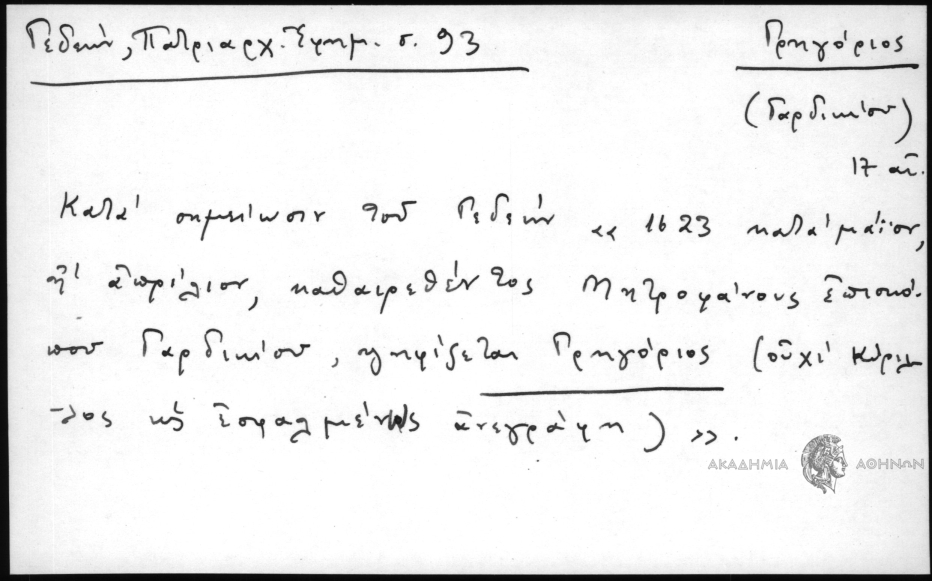 Γεδεών, Πατριαρχ. Ἐφημ. σ. 93
Γρηγόριος
(Γαρδικίου)
17 αἰ.
Κατὰ σημείωσιν τοῦ Γεδεών «1623 κατὰ μάϊον,
ἢ ἀπρίλιον, καθαιρεθέντος Μητροφάνους ἐπισκό-
που Γαρδικίου, ψηφίζεται Γρηγόριος (οὐχὶ Κύριλ-
-λος ὡς ἐσφαλμένως ἀνεγράφη)».
ΑΚΑΔΗΜΙΑ ΑΘΗΝΩΝ